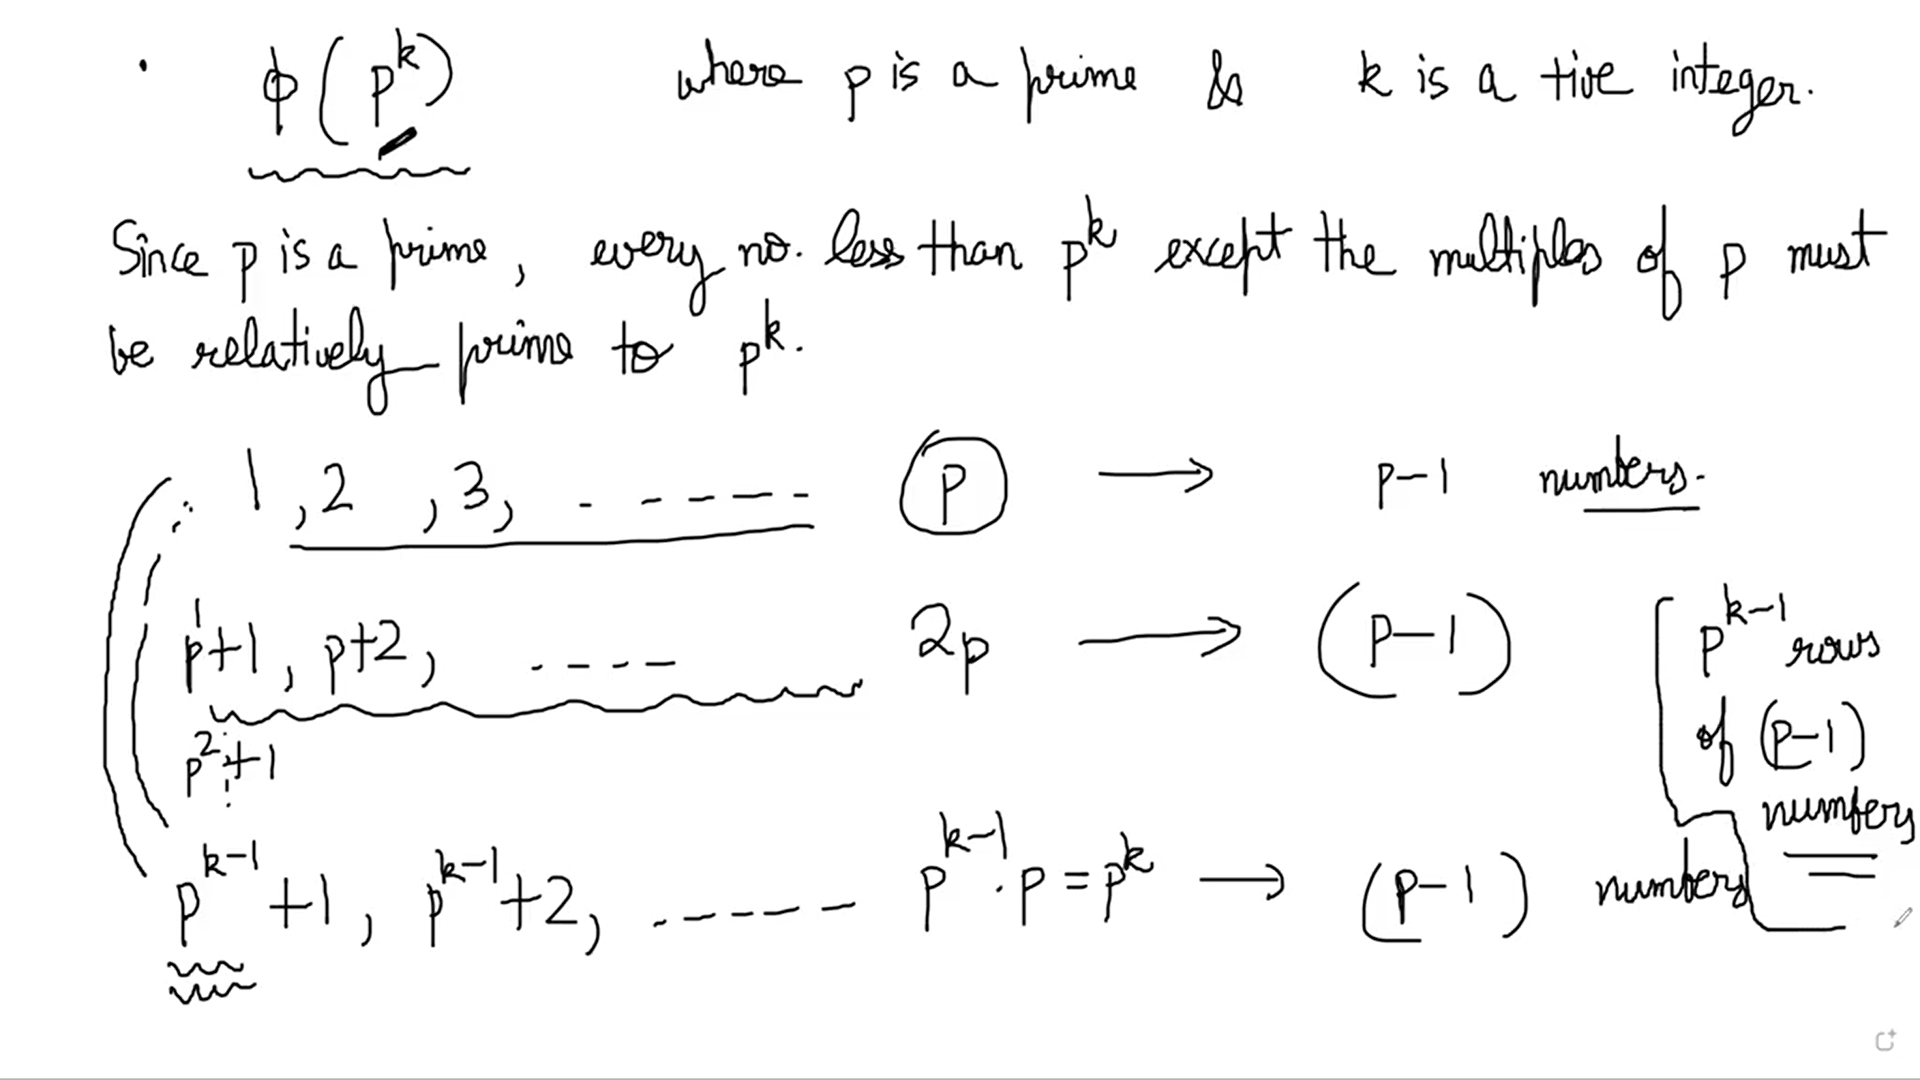 · ϕ(p^k) where p is a prime & k is a +ive integer.
Since p is a prime, every no. less than p^k except the multiples of p must
be relatively prime to p^k.
1, 2, 3, . ----- p → p-1 numbers.
p+1, p+2, ---- 2p → (p-1)
p^2+1
p^{k-1}+1, p^{k-1}+2, ------ p^{k-1}·p = p^k → (p-1) numbers
p^{k-1} rows
of (p-1)
numbers